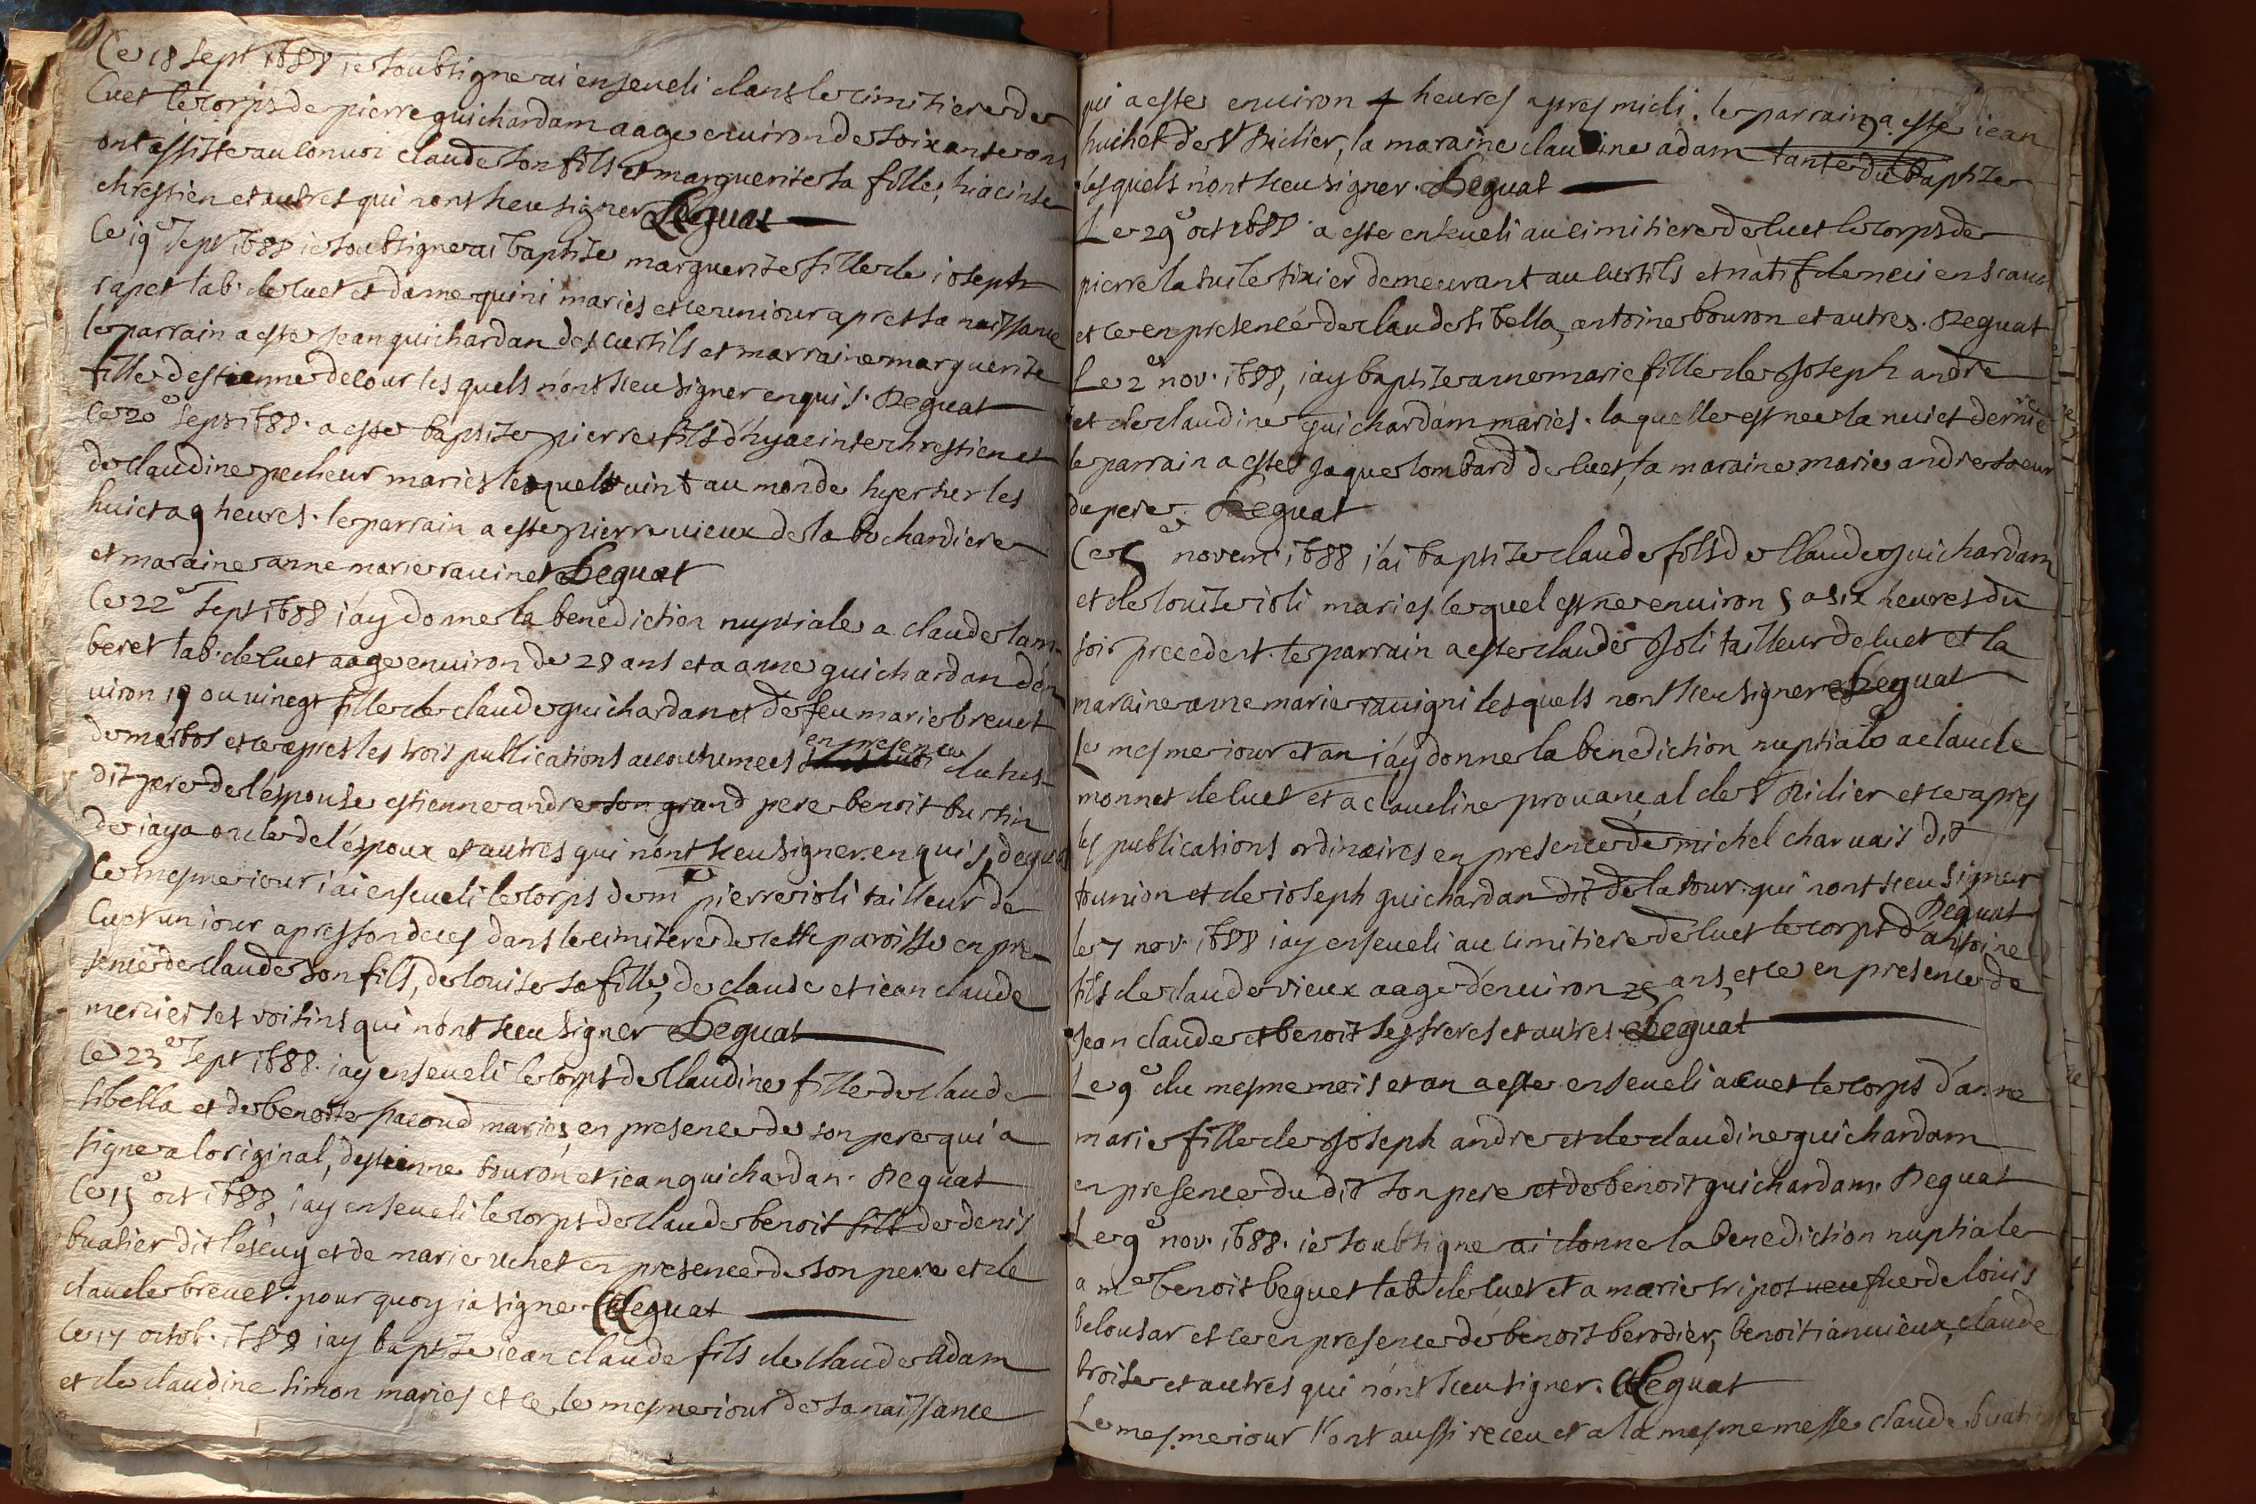 Ce 18 sept 1688 ie soubsigne ai enseveli dans le cimitiere de
Cuet le corps de pierre guichardam aage environ de soixante ans
ont assiste au convoi claude son fils et marguerite sa fille, hiacinte
chrestien et autres qui nont sceu signer Deguat
Ce 19e sept 1688 ie soubsigne ai baptize marguerite fille de ioseph
rapet lab. de cuet et dame quini maries et ce un iour apres sa naissance
le parrain a este jean guichardan des curtils et marraine marguerite
fille destienne decour les quels n'ont sceu signer enquis. Deguat
Ce 20e sept 1688. a este baptize pierre fils d'hyacinte chrestien et
de claudine pecheur maries lequel vint au monde hyer sur les
huict a 9 heures. le parrain a este pierre vieux de la bochardiere
et maraine anne marie ravinet Deguat
Ce 22e sept 1688 i'ay donne la benediction nuptiale a claude lam-
beret lab. de cuet aage environ de 28 ans et a anne guichardan d'en
viron 19 ou vinegt fille de claude guichardan et de feu marie brevet
de marbos et ce apres les trois publications accoutumees en presence dusus-
dit pere de l'espouse estienne andre son grand pere benoit burtin
de iaya oncle de l'époux et autres qui n'ont sceu signer enquis, deguat
Ce mesme iour i'ai enseveli le corps de me pierre ioli tailleur de
Cuet un iour apres son deces dans le cimitere de cette paroisse en pre
sence de claude son fils, de louise sa fille, de claude et iean claude
mercier ses voisins qui n'ont sceu signer Deguat
Ce 23e sept 1688. iay enseveli le corps de Claudine fille de claude
sibella et de benoite pacoud maries, en presence de son pere qui a
signe a loriginal, destienne bouron, et iean guichardan. Deguat
Ce 15e oct 1688, i'ay enseveli le corps de claude benoit fils de denis
buatier dit lescuy et de marie uchet en presence de son pere et de
claude brevet. pour quoy ia signe Deguat
Ce 17 octob. 1688 iay baptize iean claude fils de claude Adam
et de claudine simon maries et ce le mesme iour de sa naissance
qui a este environ 4 heures apres midi. le parrain a este iean
huchet de St Didier, la maraine claudine adam tante du baptize
lesquels n'ont sceu signer. Deguat
Le 29e oct 1688 a este enseveli au cimitiere de cuet le corps de
pierre la suite tixier demeurant au curtils et natif de
et ce en presence de claude sibella, antoine bouron et autres. Deguat
Le 2e nov. 1688, i'ay baptize anne marie fille de Joseph andre
et de claudine guichardam maries. la quelle est nee la nuict derniere
le parrain a este Jaque lombard de cuet, la maraine marie andre soeur
du pere. Deguat
Ce 5e novem 1688 j'ai baptize claude fils de Claude guichardam
et de louise ioli maries lequel est ne environ 5 a six heures du
soir precedent. le parrain a este claude Joli tailleur de cuet et la
maraine anne marie ravigni lesquels nont sceu signer Deguat
Le mesme iour et an i'ay donne la benediction nuptiale a claude
monnet de cuet et a claudine provançal de St Didier et ce apres
les publications ordinaires en presence de michel charvais dit
tounion et de ioseph guichardan dit de la tour. qui nont sceu signer
Deguat
le 7 nov. 1688 iay enseveli au cimitiere de cuet le corps d'antoine
fils de claude vieux aage d'environ 25 ans, et ce en presence de
Jean claude et benoit ses freres et autres Deguat
Le 9e du mesme mois et an a este enseveli a cuet le corps d'anne
marie fille de Joseph andre et de claudine guichardam
en presence du dit son pere et de benoit guichardam. Deguat
Le 9e nov. 1688. ie soubsigne ai donne la benediction nuptiale
a me benoit beguet lab de cuet et a marie tripoz veufve de louis
belousar et ce en presence de benoit berodier, benoit ianvieux, claude
broise et autres qui n'ont sceu signer. Deguat
Le mesme iour l'ont aussi receu et a la mesme messe claude buatier